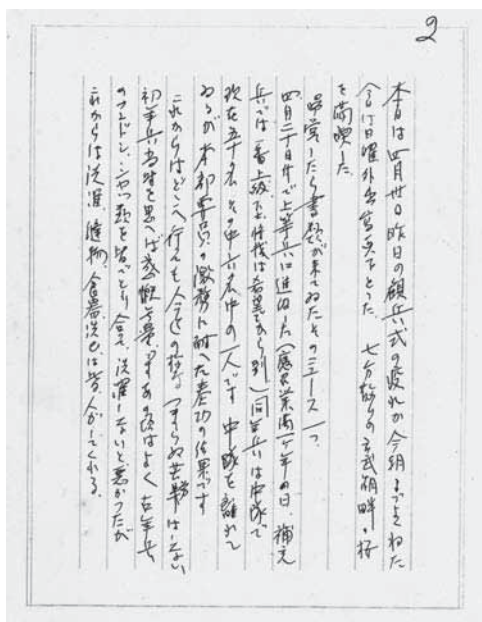 2
本日は四月卅日 昨日の観兵式の疲れか今朝までよくねた
今日は日曜外出写真でとった 七分散りの玄武湖畔の桜
を満喫した
帰営したら書類が来てゐた そのニュース一つ
四月二十日付で上等兵に進級した
兵では一番上級です 同年兵は中隊で
現在五十名 その中六名中の一人です 中隊を離れて
ゐるが本部要員の激務に耐へた奉功の結果です
これからはどこへ行っても今迄の様な つまらぬ苦労はしない
初年兵当時を思へば感慨無量です あの頃はよく古年兵
のフンドシ、シャツ類を皆でとり合って洗濯しないと悪かったが
これからは洗濯、縫物、食器洗ひは皆、人がしてくれる